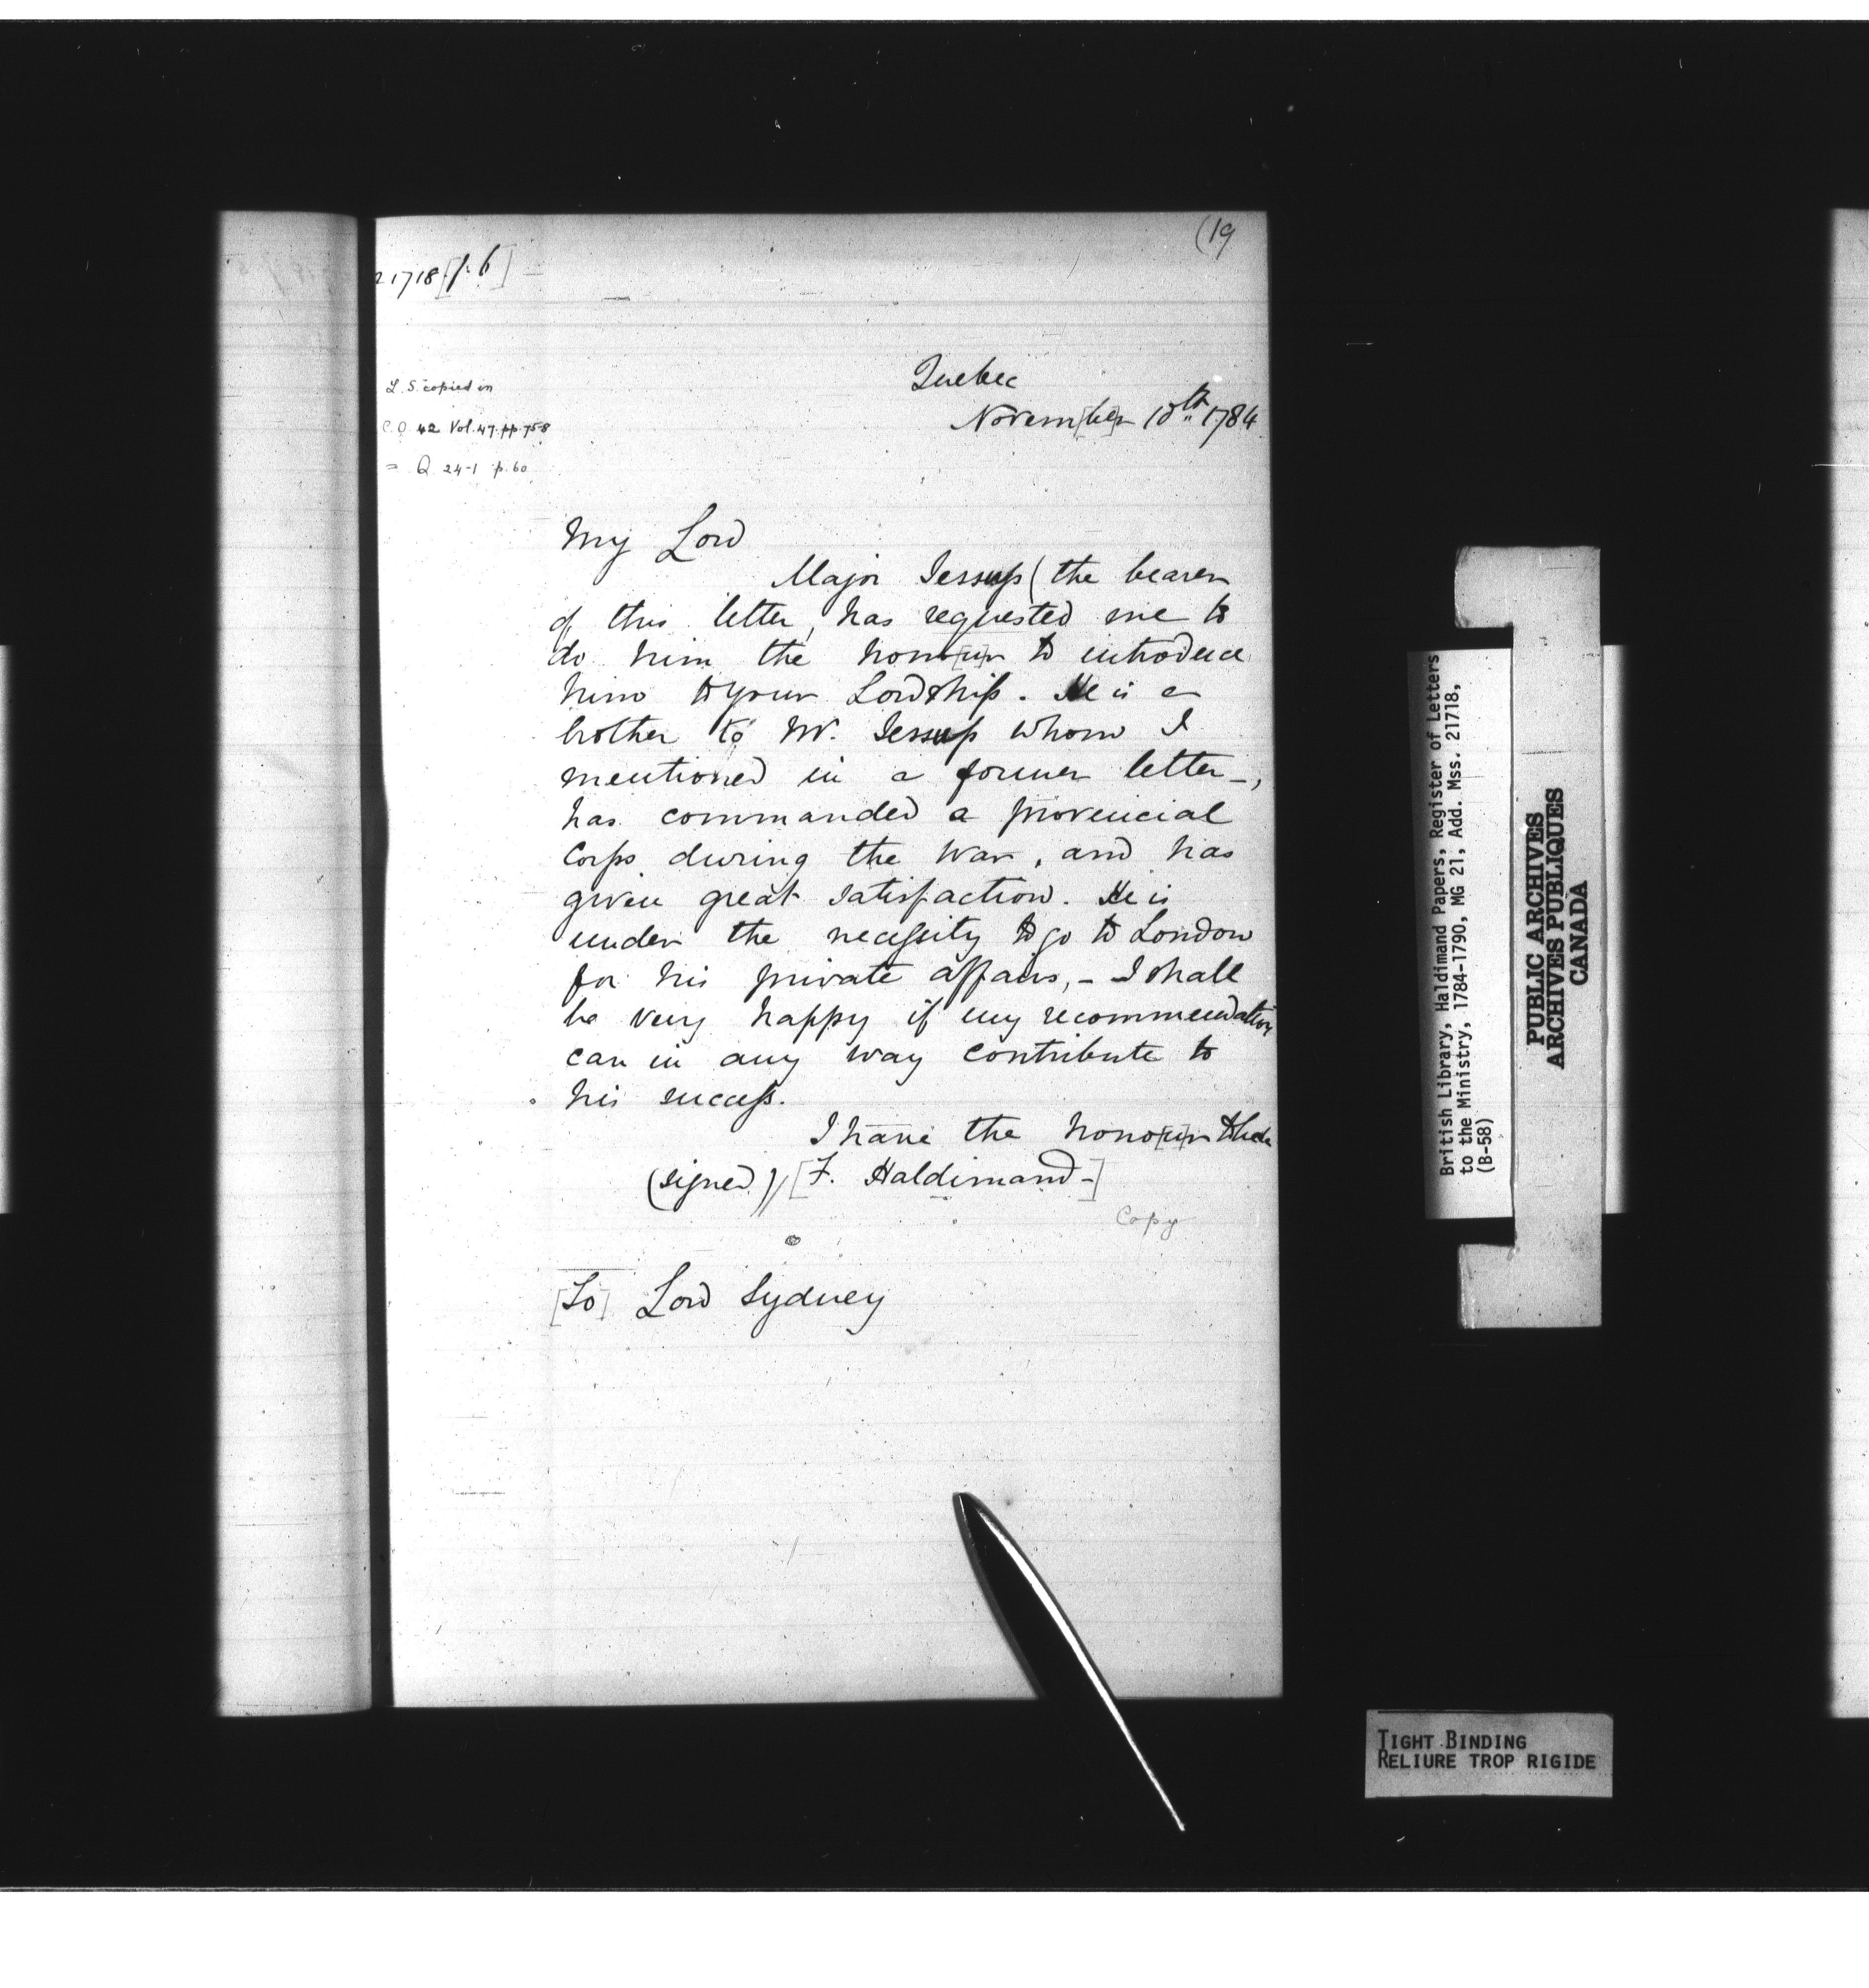 (19
21718 [p. 6]
L. S. copied in
C.O. 42 Vol. 47. pp. 758
= Q. 24-1 p. 60
Quebec
Novem[be]r 10th 1784
My Lord
Major Jessup (the bearer
of this letter, has requested me to
do him the hono[u]r to introduce
him to your Lordship. He is a
brother to Mr. Jessup whom I
mentioned in a former letter-,
has commanded a provincial
Corps during the War, and has
given great satisfaction. He is
under the necessity to go to London
for his private affairs, - I shall
be very happy if my recommendation
can in any way contribute to
his success.
I have the hono[u]r to be
(signed) [F. Haldimand-]
Copy
[To] Lord Sydney
British Library, Haldimand Papers, Register of Letters
to the Ministry, 1784-1790, MG 21, Add. Mss. 21718,
(B-58)
PUBLIC ARCHIVES
ARCHIVES PUBLIQUES
CANADA
TIGHT BINDING
RELIURE TROP RIGIDE